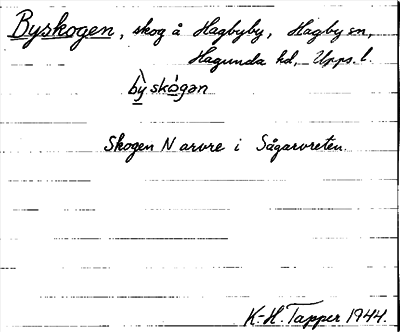 Byskogen, skog å Hagbyby, Hagby sn,
Hagunda hd, Upps. l.
bỳ skógən
Skogen N arvre i Sågarvreten.
K-H. Tapper 1944.